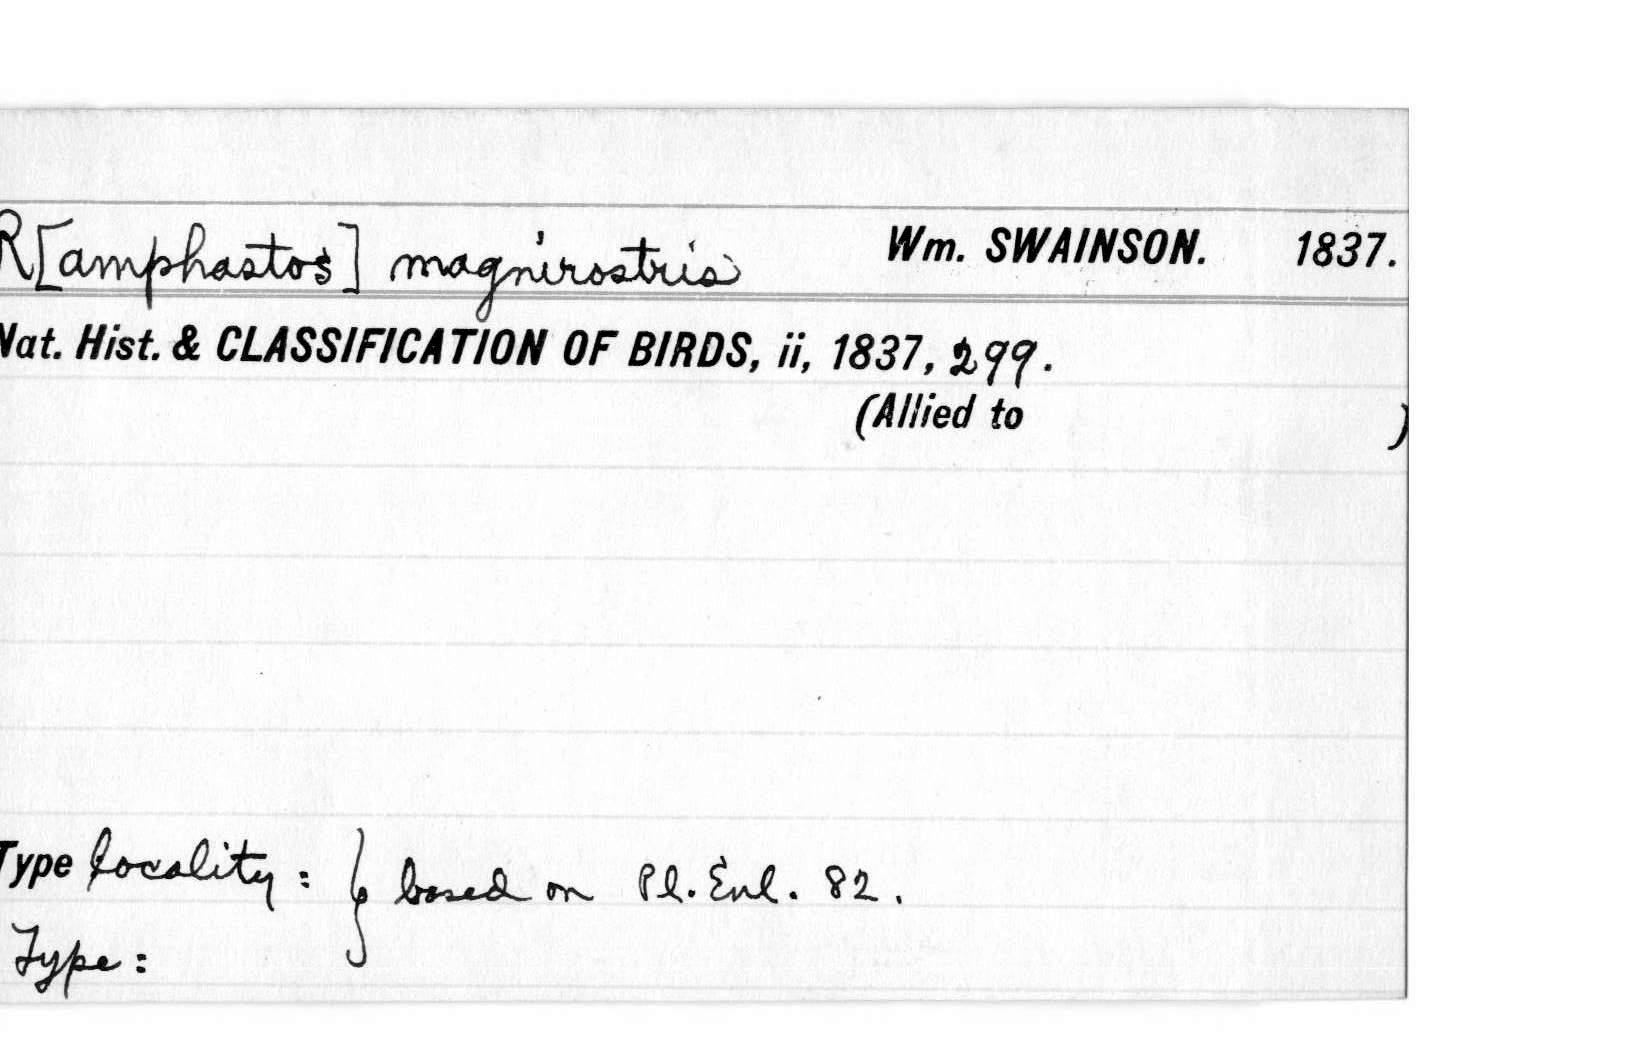 R[amphastos] magnirostris Wm. SWAINSON. 1837.
Nat. Hist. & CLASSIFICATION OF BIRDS, ii, 1837, 299.
(Allied to )
Type locality : } based on Pl. Enl. 82.
Type :